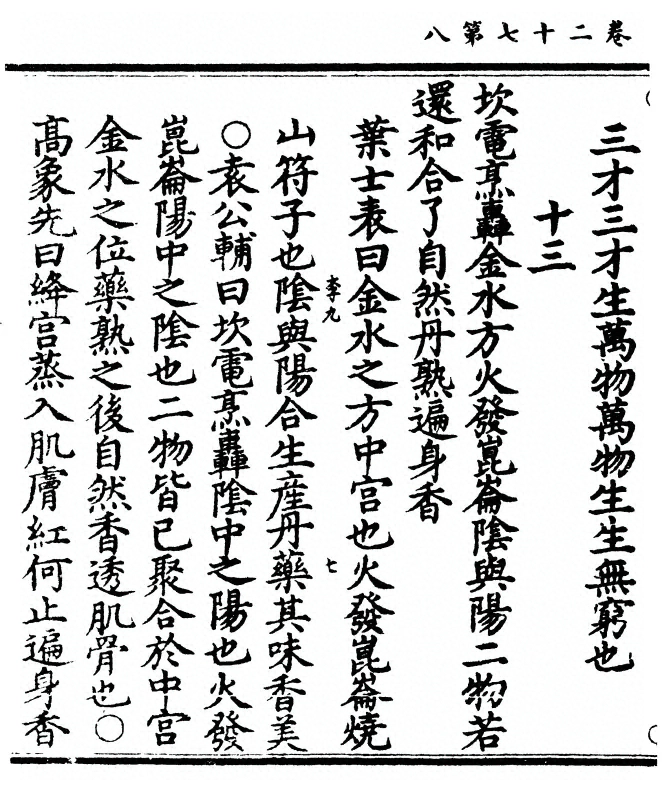 卷二十七第八
三才三才生萬物萬物生生無窮也
十三
坎電烹轟金水方火發崑崙陰與陽二物若
還和合了自然丹熟遍身香
葉士表曰金水之方中宮也火發崑崙燒
山符子也陰與陽合生産丹藥其味香美
李九
七
○袁公輔曰坎電烹轟陰中之陽也火發
崑崙陽中之陰也二物皆已聚合於中宮
金水之位藥熟之後自然香透肌骨也○
高象先曰絳宮蒸入肌膚紅何止遍身香